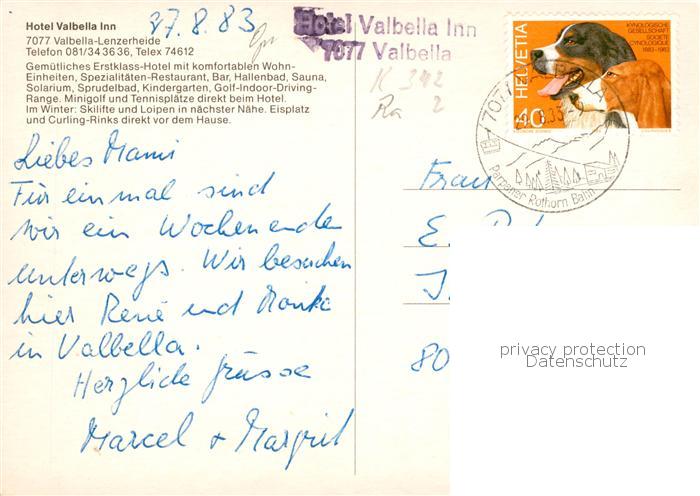 Hotel Valbella Inn
7077 Valbella-Lenzerheide
Telefon 081/34 36 36, Telex 74612
Gemütliches Erstklass-Hotel mit komfortablen Wohn-
Einheiten, Spezialitäten-Restaurant, Bar, Hallenbad, Sauna,
Solarium, Sprudelbad, Kindergarten, Golf-Indoor-Driving-
Range. Minigolf und Tennisplätze direkt beim Hotel.
Im Winter: Skilifte und Loipen in nächster Nähe. Eisplatz
und Curling-Rinks direkt vor dem Hause.
27.8.83
Liebes Mami
Für einmal sind
wir ein Wochenende
unterwegs. Wir besuchen
hier René und Monika
in Valbella.
Herzliche Grüsse
Marcel + Margrit
Hotel Valbella Inn
7077 Valbella
K 342
Ra 2
HELVETIA
KYNOLOGISCHE
GESELLSCHAFT
SOCIETE
CYNOLOGIQUE
1883-1983
40
7077
Parpaner Rothorn Bahn
Frau
E.
80
privacy protection
Datenschutz